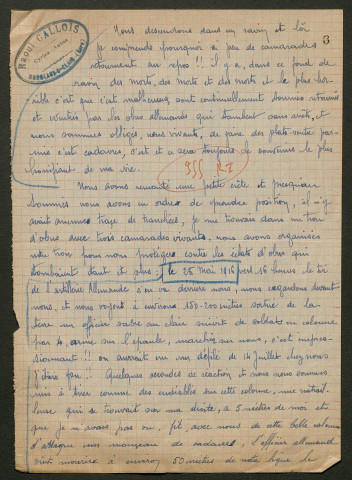 3
Raoul GALLOIS
Cycles - Autos
Nous descendrons dans un ravin et là
je comprends pourquoi si peu de camarades
retournent au repos !! il y a, dans ce fond de
ravin des morts, des morts et des morts et le plus hor-
rible c'est que c'est malheureux sont continuellement
et par les obus allemands qui tombent sans arrêt, et
nous sommes obligés, nous vivants, de faire des plats ventre par-
mis c'est cadavres, c'est et ce sera toujours le souvenirs le plus
de ma vie.
Nous avons remonté une petite crête et presque
sommes nous avons eu ordre de prendre position, il n'y
avait aucunes trace de tranchées, je me trouvais dans un trou
d'obus avec trois camarades vivants, nous avons organisés
notre trou pour nous protéger contre les éclats d'obus qui
tombaient tant et plus ; le 25 Mai 1916 vers 16 heures le tir
de l'artillerie Allemande s'en va derrière nous, nous regardons devant
nous, et nous voyons à environs 150-200 mètres sortir de la
terre un officier sabre au clair suivit de soldats en colonne
par 4, arme sur l'épaule, marcher sur nous, c'est impres-
sionnant !! on aurait cru un défilé de 14 Juillet chez nous
Quelques secondes de réaction et nous nous sommes
mis à tirer comme des endiablés sur cette colonne, une mitrail-
leuse qui se trouvait sur ma droite, à 5 mètres de moi et
que je n'avais pas vu, fit avec nous de cette belle colonne
d'attaque un monceau de cadavres, l'officier allemand
vint mourir à environ 50 mètres de notre ligne le